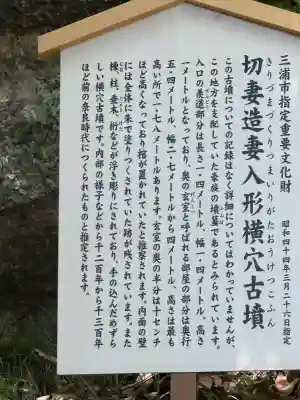 三浦市指定重要文化財
昭和四十四年三月二十六日指定
切妻造妻入形横穴古墳
きりづまづくりつまいりがたおうけつこふん
この古墳についての記録はなく詳細についてはわかっていませんが、
この地方を支配していた豪族の墳墓であるとみられています。
入口の羨道部分は長さ一・四メートル、幅一・四メートル、高さ
一メートルとなっており、奥の玄室と呼ばれる部屋の部分は奥行
五・四メートル、幅一・七メートルから四メートル、高さは最も
高い所で一・七八メートルあります。玄室の奥の半分は十センチ
ほど高くなっており棺が置かれていたと推察されます。内面の壁
には全体に朱で塗りつくされていた跡が残されています。また
棟、柱、垂木、桁などが浮き彫りにされており、手の込んだめずら
しい横穴古墳です。内部の様子などから千二百年から千三百年
ほど前の奈良時代につくられたものと推定されます。